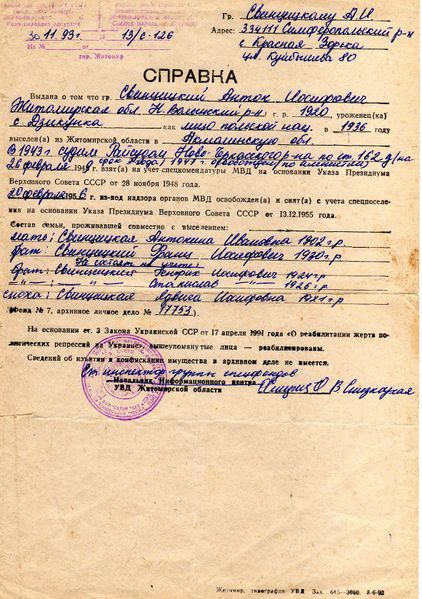 Гр. Свинцицкому А.И.
Адрес: 334111 Симферопольский р-н
с. Красная Зорька
ул. Куйбышева 80
30.11.93 г. 13/с-126
На №
гор. Житомир
СПРАВКА
Выдана о том что гр. Свинцицкий Антон Иосифович
Житомирская обл. Н.Волынский р-н г. р. 1920 уроженец(ка)
с как лицо польской нац. в 1936 году
выселен(а) из Житомирской области в Акмолинскую обл.
В 1943 г. судим Райсудом Ново-Черкасского р-на по ст. 162 д на
26 февраля 1949 взят(а) на учет спецкомендатуры МВД на основании Указа Президиума
Верховного Совета СССР от 28 ноября 1948 года.
20 февраля 56 из-под надзора органов МВД освобожден(а) и снят(а) с учета спецпоселе-
ния на основании Указа Президиума Верховного Совета СССР от 13.12.1955 года.
Состав семьи, проживавшей совместно с выселением:
мать: Свинцицкая Антонина Ивановна 1902 г.р.
брат: Свинцицкий Франц Иосифович 1930 г.р.
На составе на учете:
брат: Свинцицкий Генрих Иосифович 1924 г.р.
—"— : —"— Станислав —"— 1926 г.р.
сноха: Свинцицкая Ядвига Иосифовна 1921 г.р.
(Фонд № 7, архивное личное дело № 17753).
На основании ст. 3 Закона Украинской ССР от 17 апреля 1991 года «О реабилитации жертв по-
литических репрессий на Украине», вышеупомянутые лица — реабилитированы.
Сведений об изъятии и конфискации имущества в архивном деле не имеется.
Ст. инспектор группы спецфондов
Начальник Информационного центра
УВД Житомирской области
Житомир, типография УВД Зак. 645—3000. 8-6-92